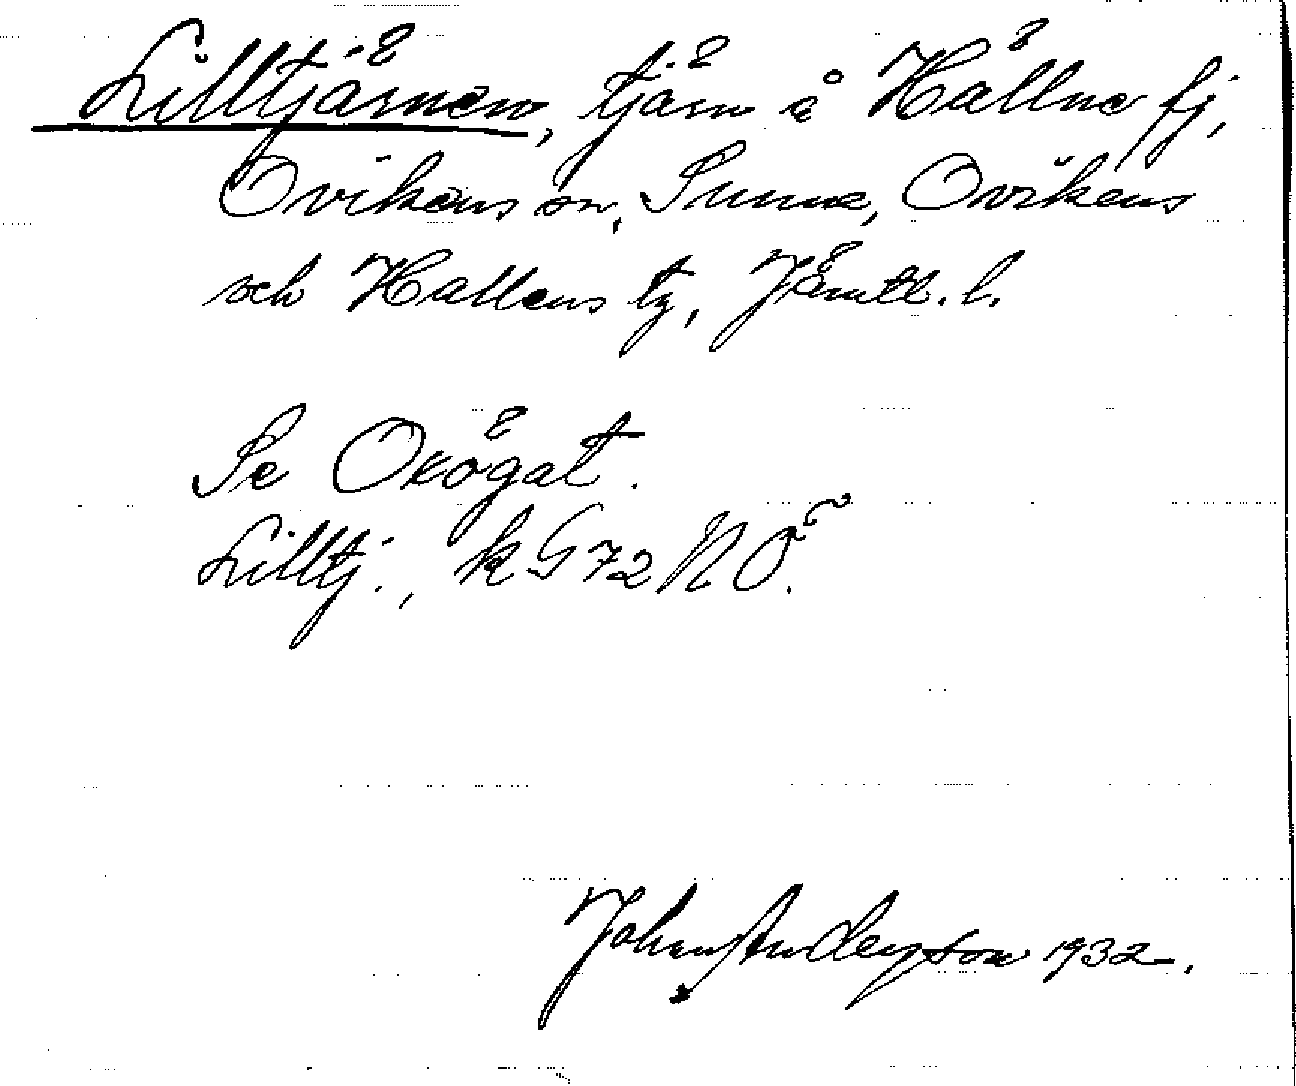 Lilltjärnen, tjärn å Hållne fj,
Ovikens sn, Sunne, Ovikens
och Hallens tg, Jämtl. l.
Se Oxögat.
Lilltj., k G 72 N Ö.
Johan Anderson 1932.